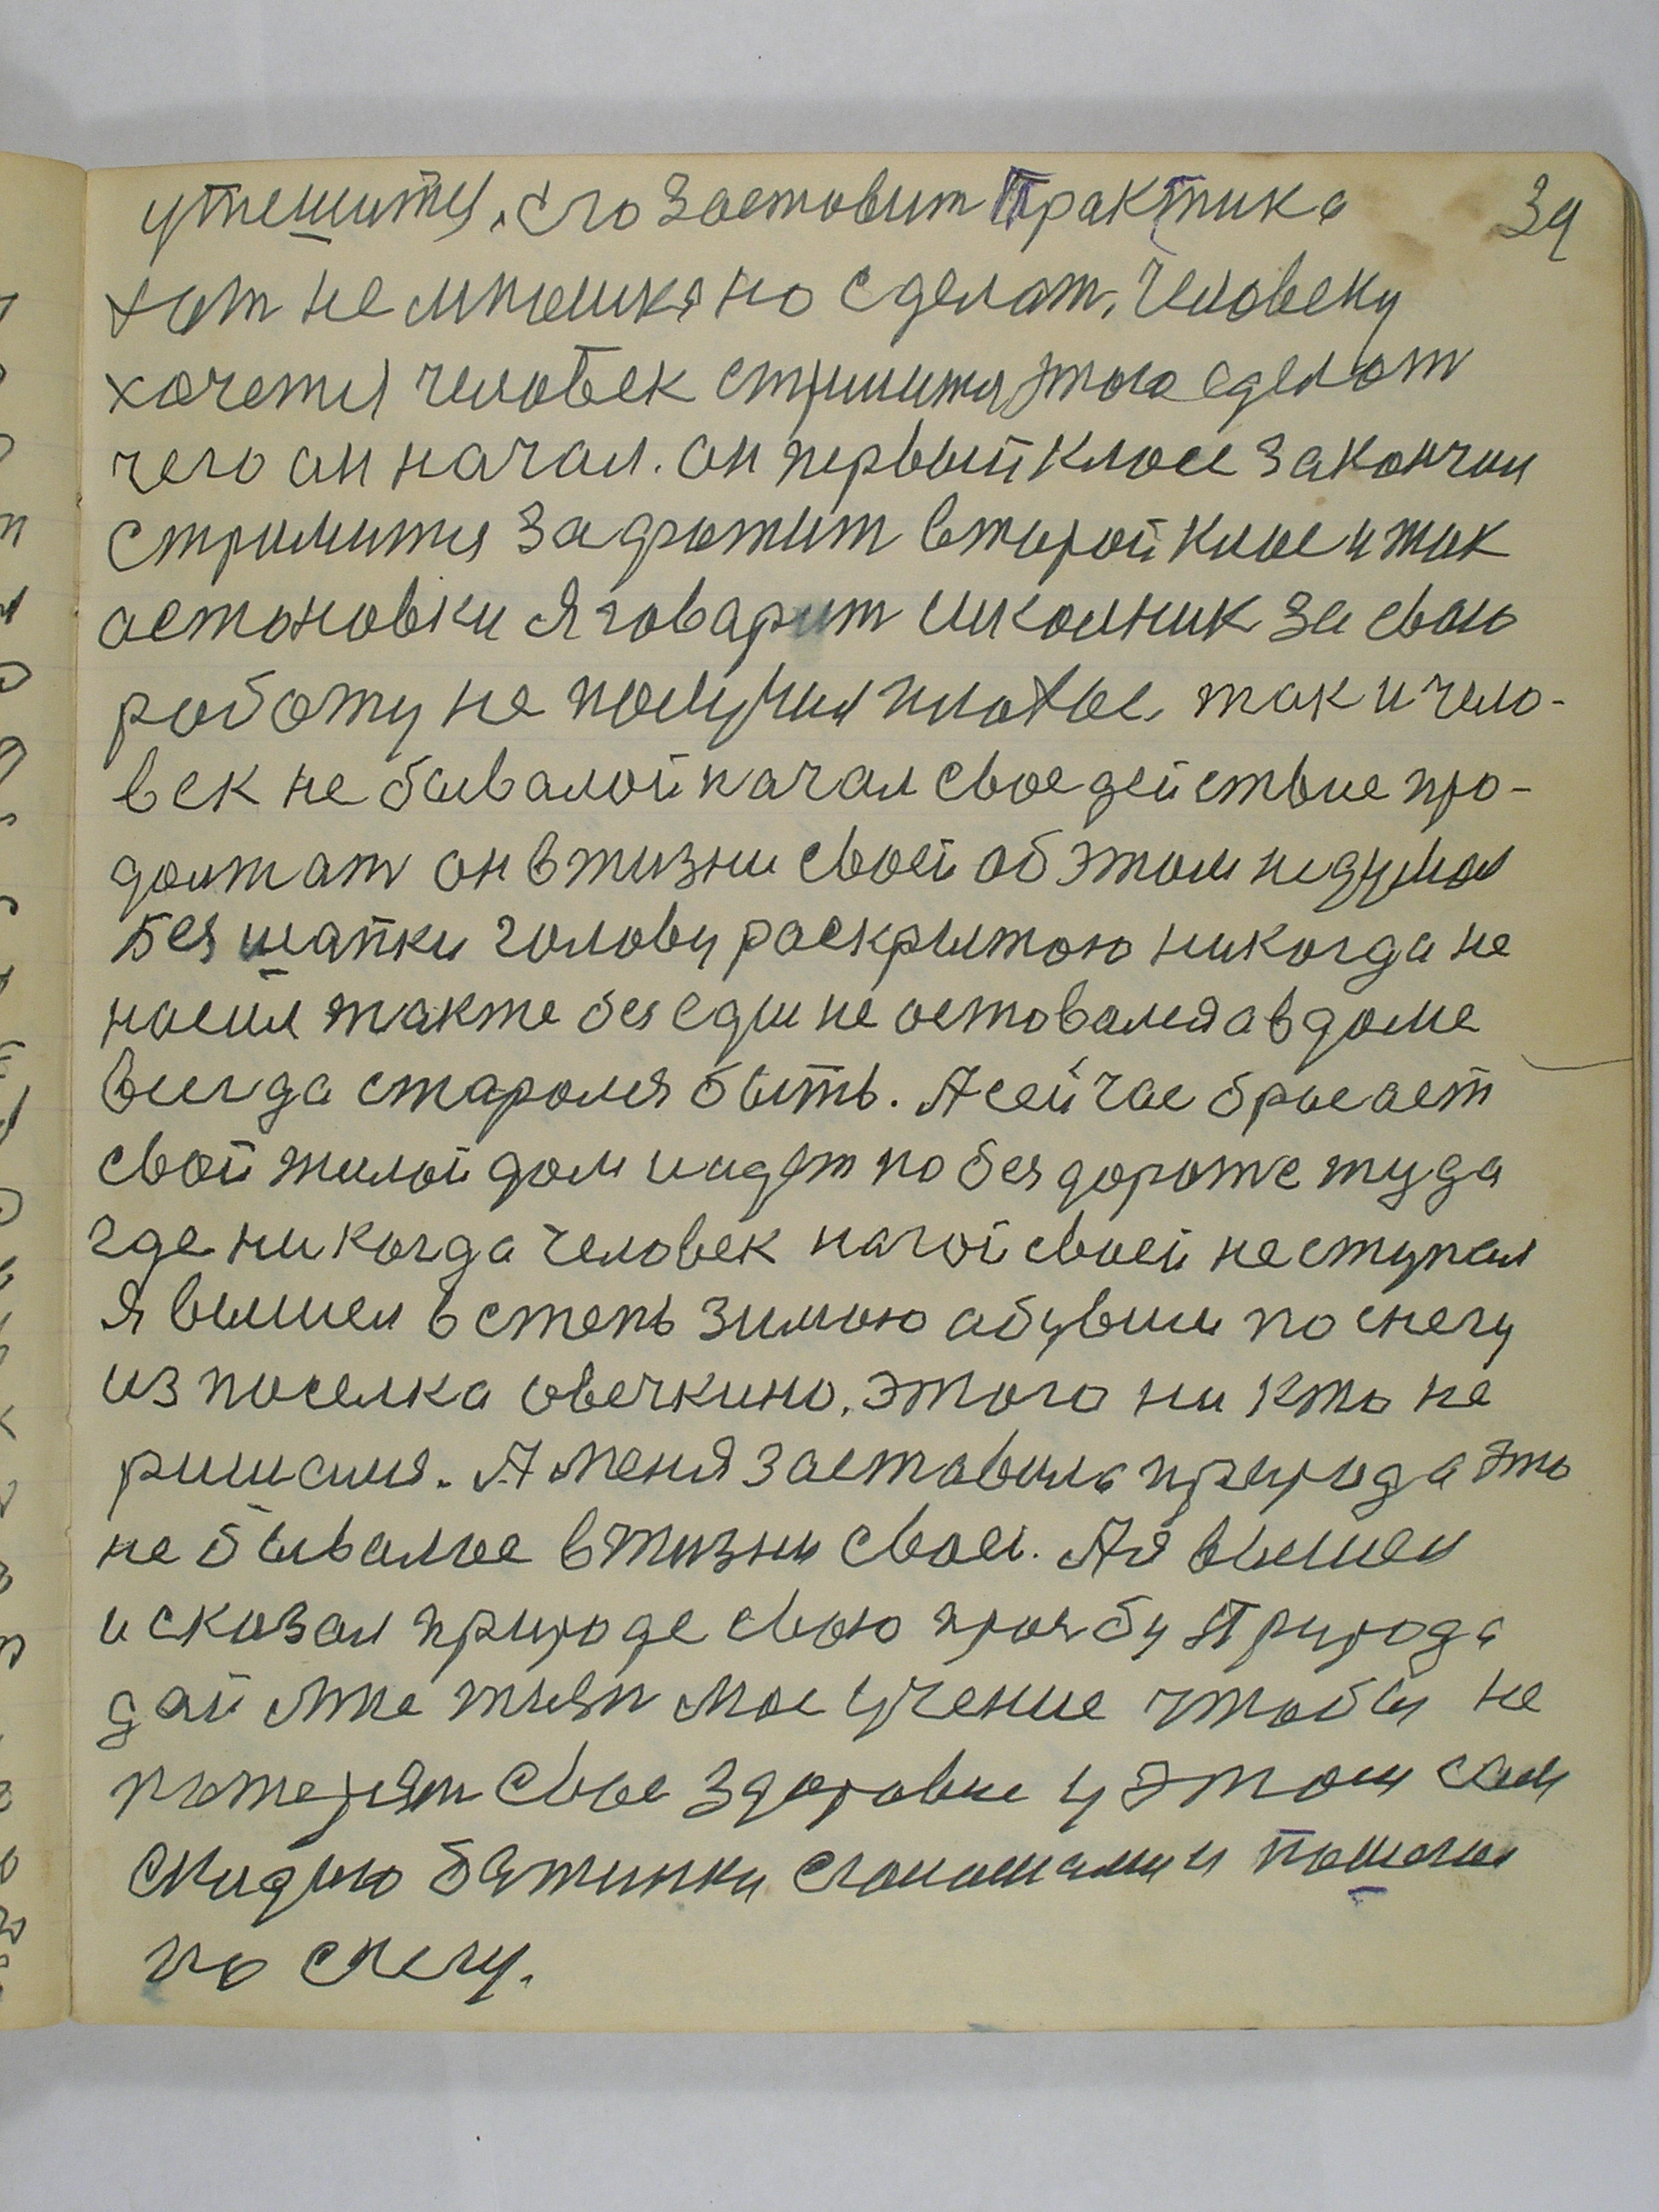 утешится, его заставит Практика 39
хат немношка но сделат. Человеку
хочется человек стримится этого сделат
чего он начал. он первый класс закончил
стримится захватит второй класс и так
астоновки Я говарит школник за свою
работу не получил плохое, так и чело-
век не бывалой начал свое действие про-
должат он в жизни своей об этом не думал
Без шапки голову раскрытою никогда не
носил также без еды не оставался а в доме
всегда старался быть. А сейчас бросает
свой жилой дом и идет по бездороже туда
где никогда человек нагой своей не ступал
Я вышел в степь зимою абувши по снегу
из поселка овечкино. этого ни кто не
ришался. А меня заставила природа это
не бывалое в жизни своей. А я вышел
и сказал природе свою прозбу Природа
дай мне жизн мое учение чтобы не
потерял свое здоровие у этом сам
скидую батинки с галошами и пошагал
по снегу.